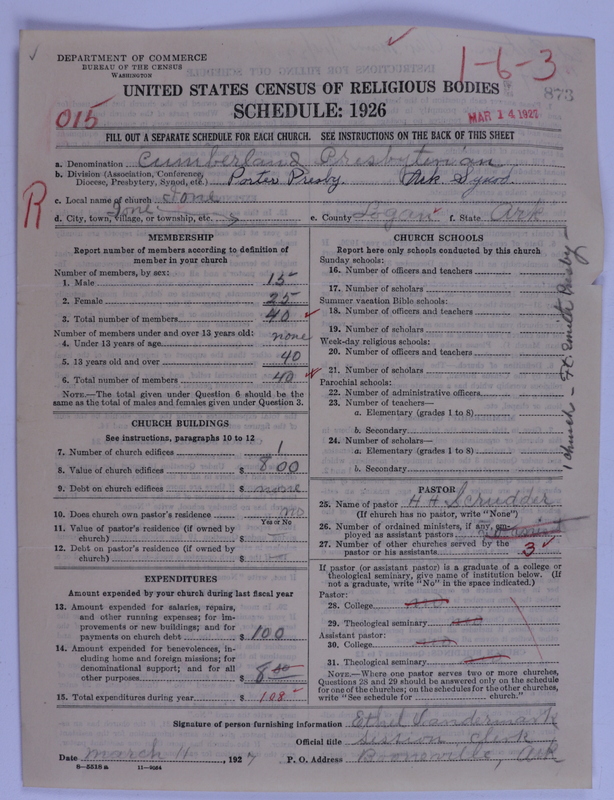 DEPARTMENT OF COMMERCE
BUREAU OF THE CENSUS
WASHINGTON
1-6-3
873
UNITED STATES CENSUS OF RELIGIOUS BODIES
SCHEDULE: 1926
015
MAR 14 1927
FILL OUT A SEPARATE SCHEDULE FOR EACH CHURCH. SEE INSTRUCTIONS ON THE BACK OF THIS SHEET
a. Denomination Cumberland Presbyterian
b. Division (Association, Conference, Diocese, Presbytery, Synod, etc.) Porter Presby. Ark Synod.
R
c. Local name of church Ione
d. City, town, village, or township, etc. Ione
e. County Logan f. State Ark
MEMBERSHIP
Report number of members according to definition of
member in your church
Number of members, by sex:
1. Male 15
2. Female 25
3. Total number of members 40
Number of members under and over 13 years old:
4. Under 13 years of age none
5. 13 years old and over 40
6. Total number of members 40
NOTE.—The total given under Question 6 should be
same as the total of males and females given under Question 3.
CHURCH BUILDINGS
See instructions, paragraphs 10 to 12
7. Number of church edifices 1
8. Value of church edifices $ 800
9. Debt on church edifices $ none
10. Does church own pastor's residence no
Yes or No
11. Value of pastor's residence (if owned by
church) $
12. Debt on pastor's residence (if owned by
church) $
EXPENDITURES
Amount expended by your church during last fiscal year
13. Amount expended for salaries, repairs,
and other running expenses; for im-
provements or new buildings; and for
payments on church debt $ 100
14. Amount expended for benevolences, in-
cluding home and foreign missions; for
denominational support; and for all
other purposes $ 8.00
15. Total expenditures during year $ 108
CHURCH SCHOOLS
Report here only schools conducted by this church
Sunday schools:
16. Number of officers and teachers
17. Number of scholars
Summer vacation Bible schools:
18. Number of officers and teachers
19. Number of scholars
Week-day religious schools:
20. Number of officers and teachers
21. Number of scholars
Parochial schools:
22. Number of administrative officers
23. Number of teachers—
a. Elementary (grades 1 to 8)
b. Secondary
24. Number of scholars—
a. Elementary (grades 1 to 8)
b. Secondary
1 church - Ft. Smith Presby -
PASTOR
25. Name of pastor H H Scrudder
(If church has no pastor, write "None")
26. Number of ordained ministers, if any, em-
ployed as assistant pastors
27. Number of other churches served by the
pastor or his assistants 3
If pastor (or assistant pastor) is a graduate of a college or
theological seminary, give name of institution below. (If
not a graduate, write "No" in the space indicated.)
Pastor:
28. College
29. Theological seminary
Assistant pastor:
30. College
31. Theological seminary
NOTE.—Where one pastor serves two or more churches,
Questions 28 and 29 should be answered only on the schedule
for one of the churches; on the schedules for the other churches,
write "See schedule for church."
Signature of person furnishing information Ethel Vandermark
Official title Session Clerk
Date March 11, 1927 P. O. Address Booneville, Ark
8—5518 a 11—9064